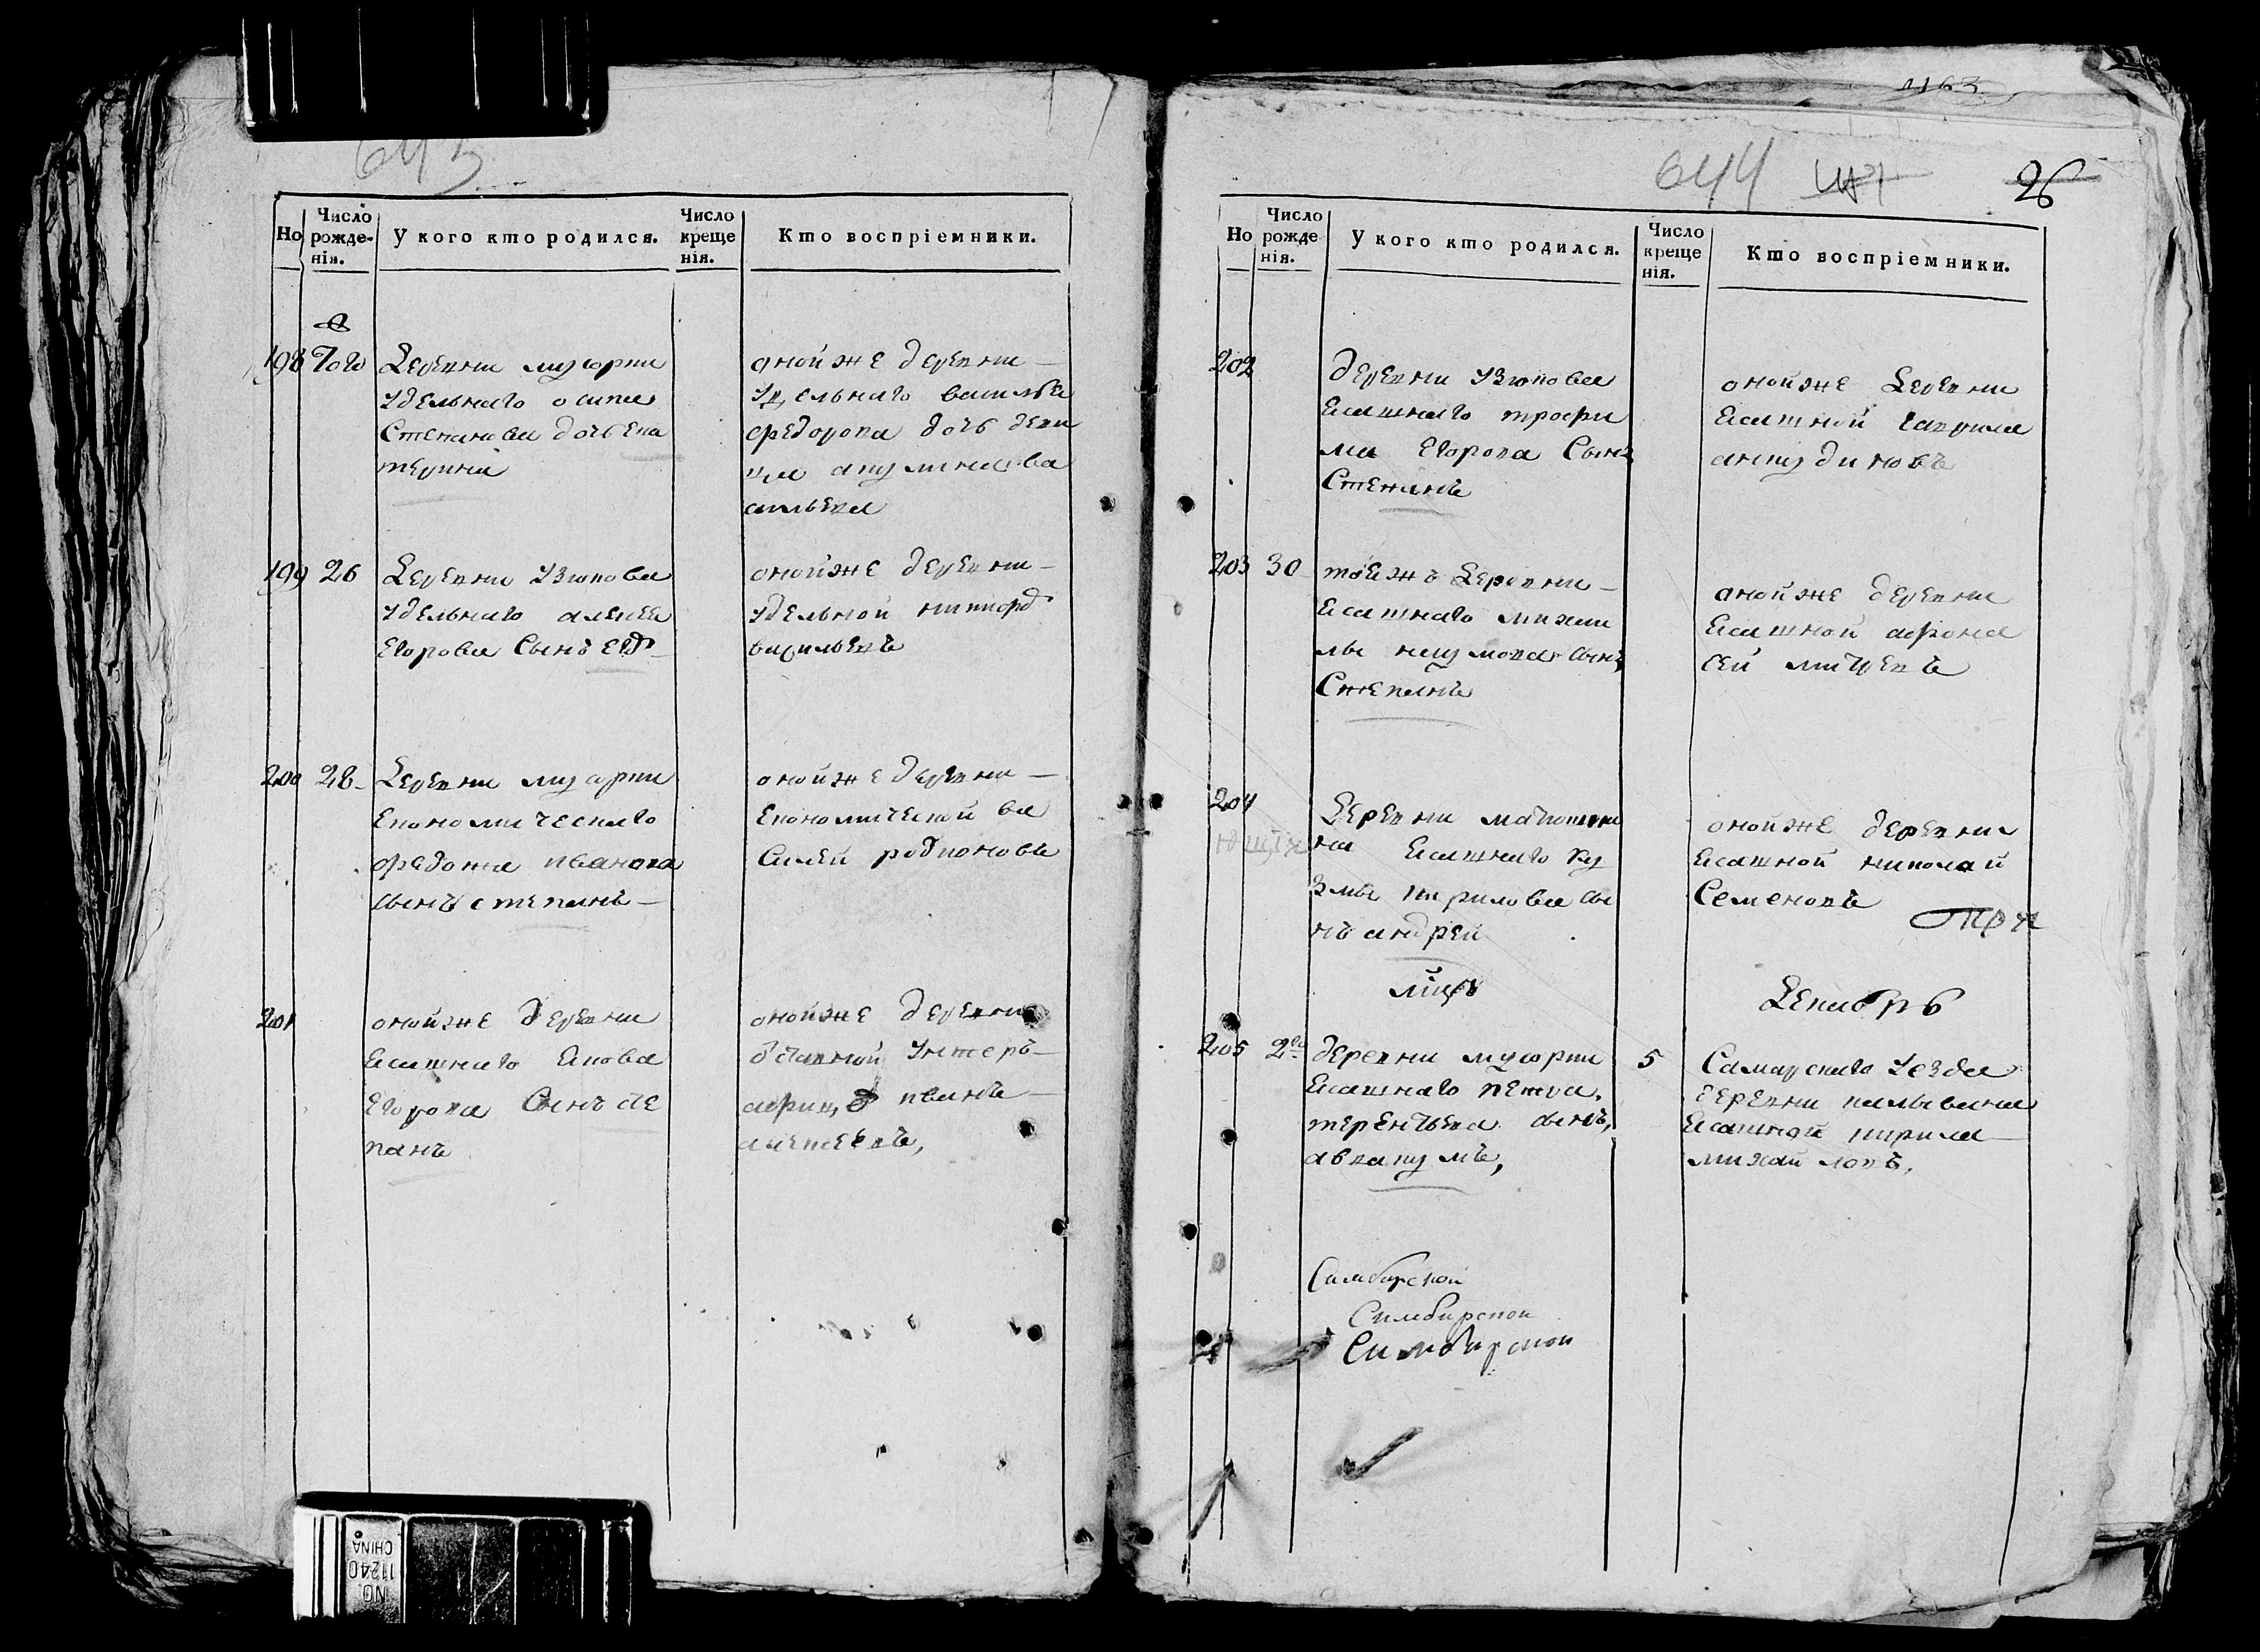 643
Но
Число рожде-нія.
У кого кто родился.
Число креще нія.
Кто воспріемники.
198 того
Деревни мусорки
удельнаго осипа
Степанова дочь ека
терина
оной же деревни
удельнаго василья
федорова дочь деви
ца акулина ва
сильева
199 26
Деревни Узюкова
удельнаго алексея
Егорова Сынъ
оной же деревни
удельной никифор
васильевъ
200 28
Деревни мусорки
Економическаго
федора иванова
сынъ степанъ
оной же деревни
Економической ва
силей родионовъ
201
оной же деревни
Ясашнаго Якова
Егорова Сынъ сте
панъ
оной же деревни
отставной Унтеръ
афиц иванъ
алексеевъ,
1163
644
26
Но
Число рожде нія.
У кого кто родился.
Число креще нія.
Кто воспріемники.
202
деревни узюкова
Ясашнаго трофи
ма Егорова Сынъ
Степанъ
оной же Деревни
Ясашной гаврила
202
203 30
тоя жъ Деревни
Ясашнаго михаи
лы наумова сынъ
Степанъ
оной же деревни
Ясашной афона
сей
204
Деревни матюшки
на Ясашнаго Ку
змы кирилова сы
нъ андрей
оной же деревни
Ясашной николай
Семеновъ
мцъ
Декабрь
205 2го
деревни мусорки
Ясашнаго петра
терентьева сынъ,
аввакумъ,
5
Самарскаго уезда
деревни
Ясашной кирила
михайловъ,
Симбирской
Симбирской
Симбирской
NO.
11240
CHINA